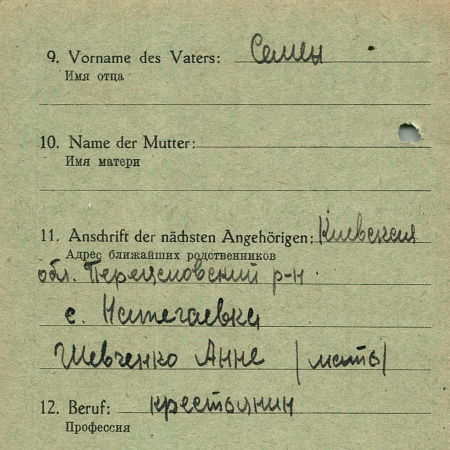 9. Vorname des Vaters: Семен
Имя отца
10. Name der Mutter:
Имя матери
11. Anschrift der nächsten Angehörigen: Киевская
Адрес ближайших родственников
обл. р-н
с.
Шевченко Анне (мать)
12. Beruf: крестьянин
Профессия